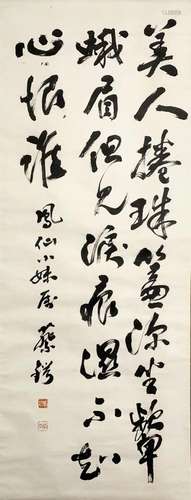 美人捲珠簾深坐顰
蛾眉但見淚痕濕不知
心恨誰
鳳仙小妹屬 蔡鍔